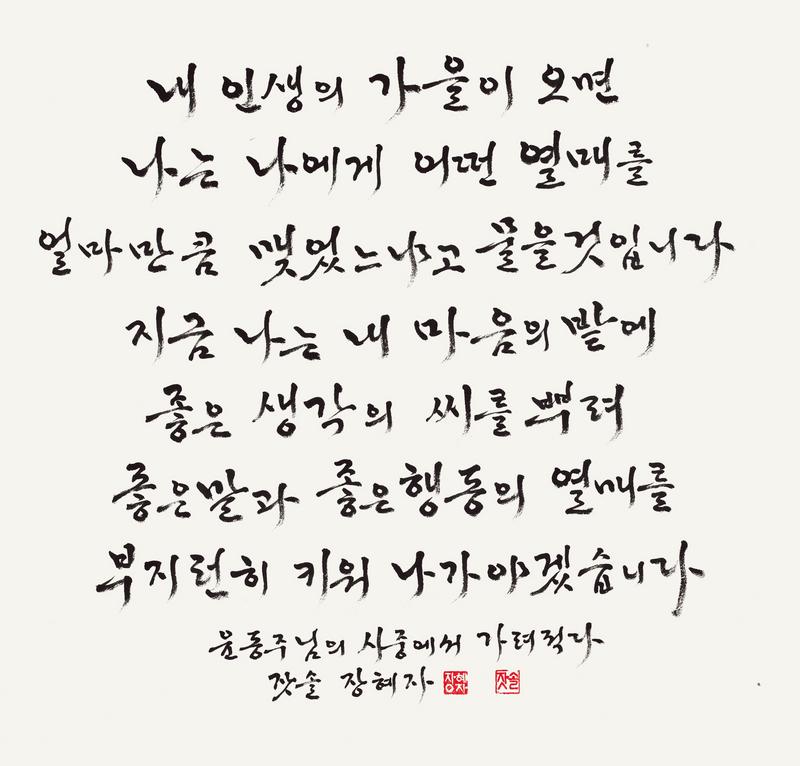 내 인생의 가을이 오면
나는 나에게 어떤 열매를
얼마만큼 맺었느냐고 물을것입니다
지금 나는 내 마음의 밭에
좋은 생각의 씨를 뿌려
좋은말과 좋은행동의 열매를
부지런히 키워 나가야겠습니다
윤동주님의 시중에서 가려적다
잣솔 장혜자 장혜자 잣솔